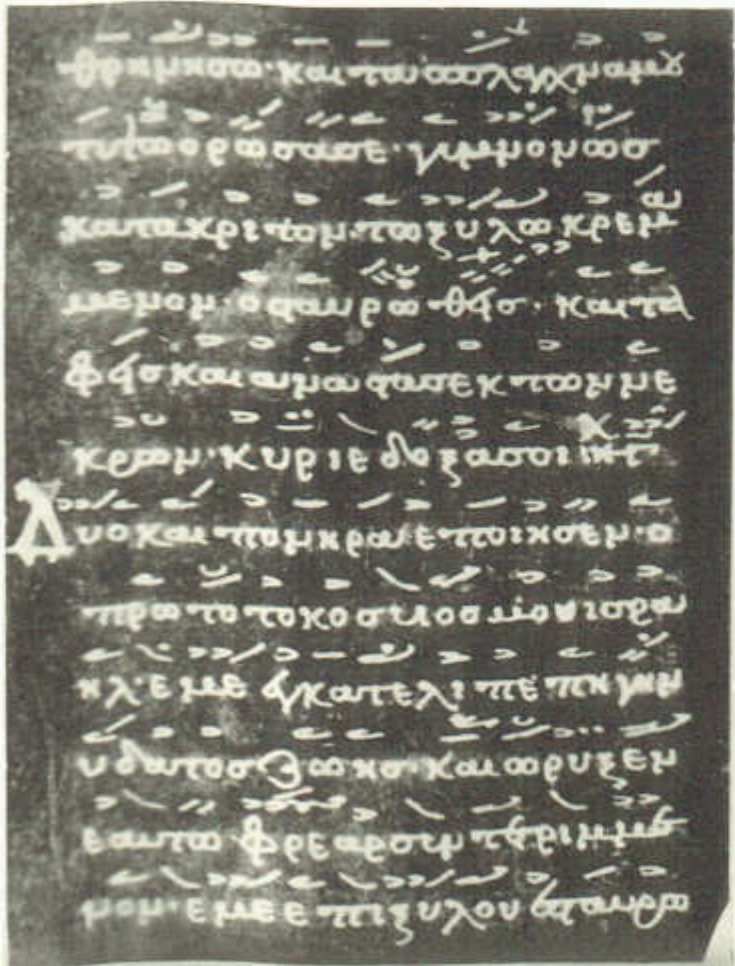 θρηνησω· και τα σπλαγχνα μου
τυπτω ορωσα σε· γυμνον ως
κατακριτον· τω ξυλω κρεμ
μενον· ο σταυρωθεις· και τα
φεις και αναστας εκ των νε
κρων· κυριε δοξα σοι
Δυο και πονηρα εποιησεν· ο
πρωτοτοκος υιος μου ισρα
ηλ· εμε εγκατελιπε πηγην
υδατος ζωης· και ωρυξεν
εαυτω φρεαρ συντετριμμε
νον· εμε επι ξυλου εσταυρω